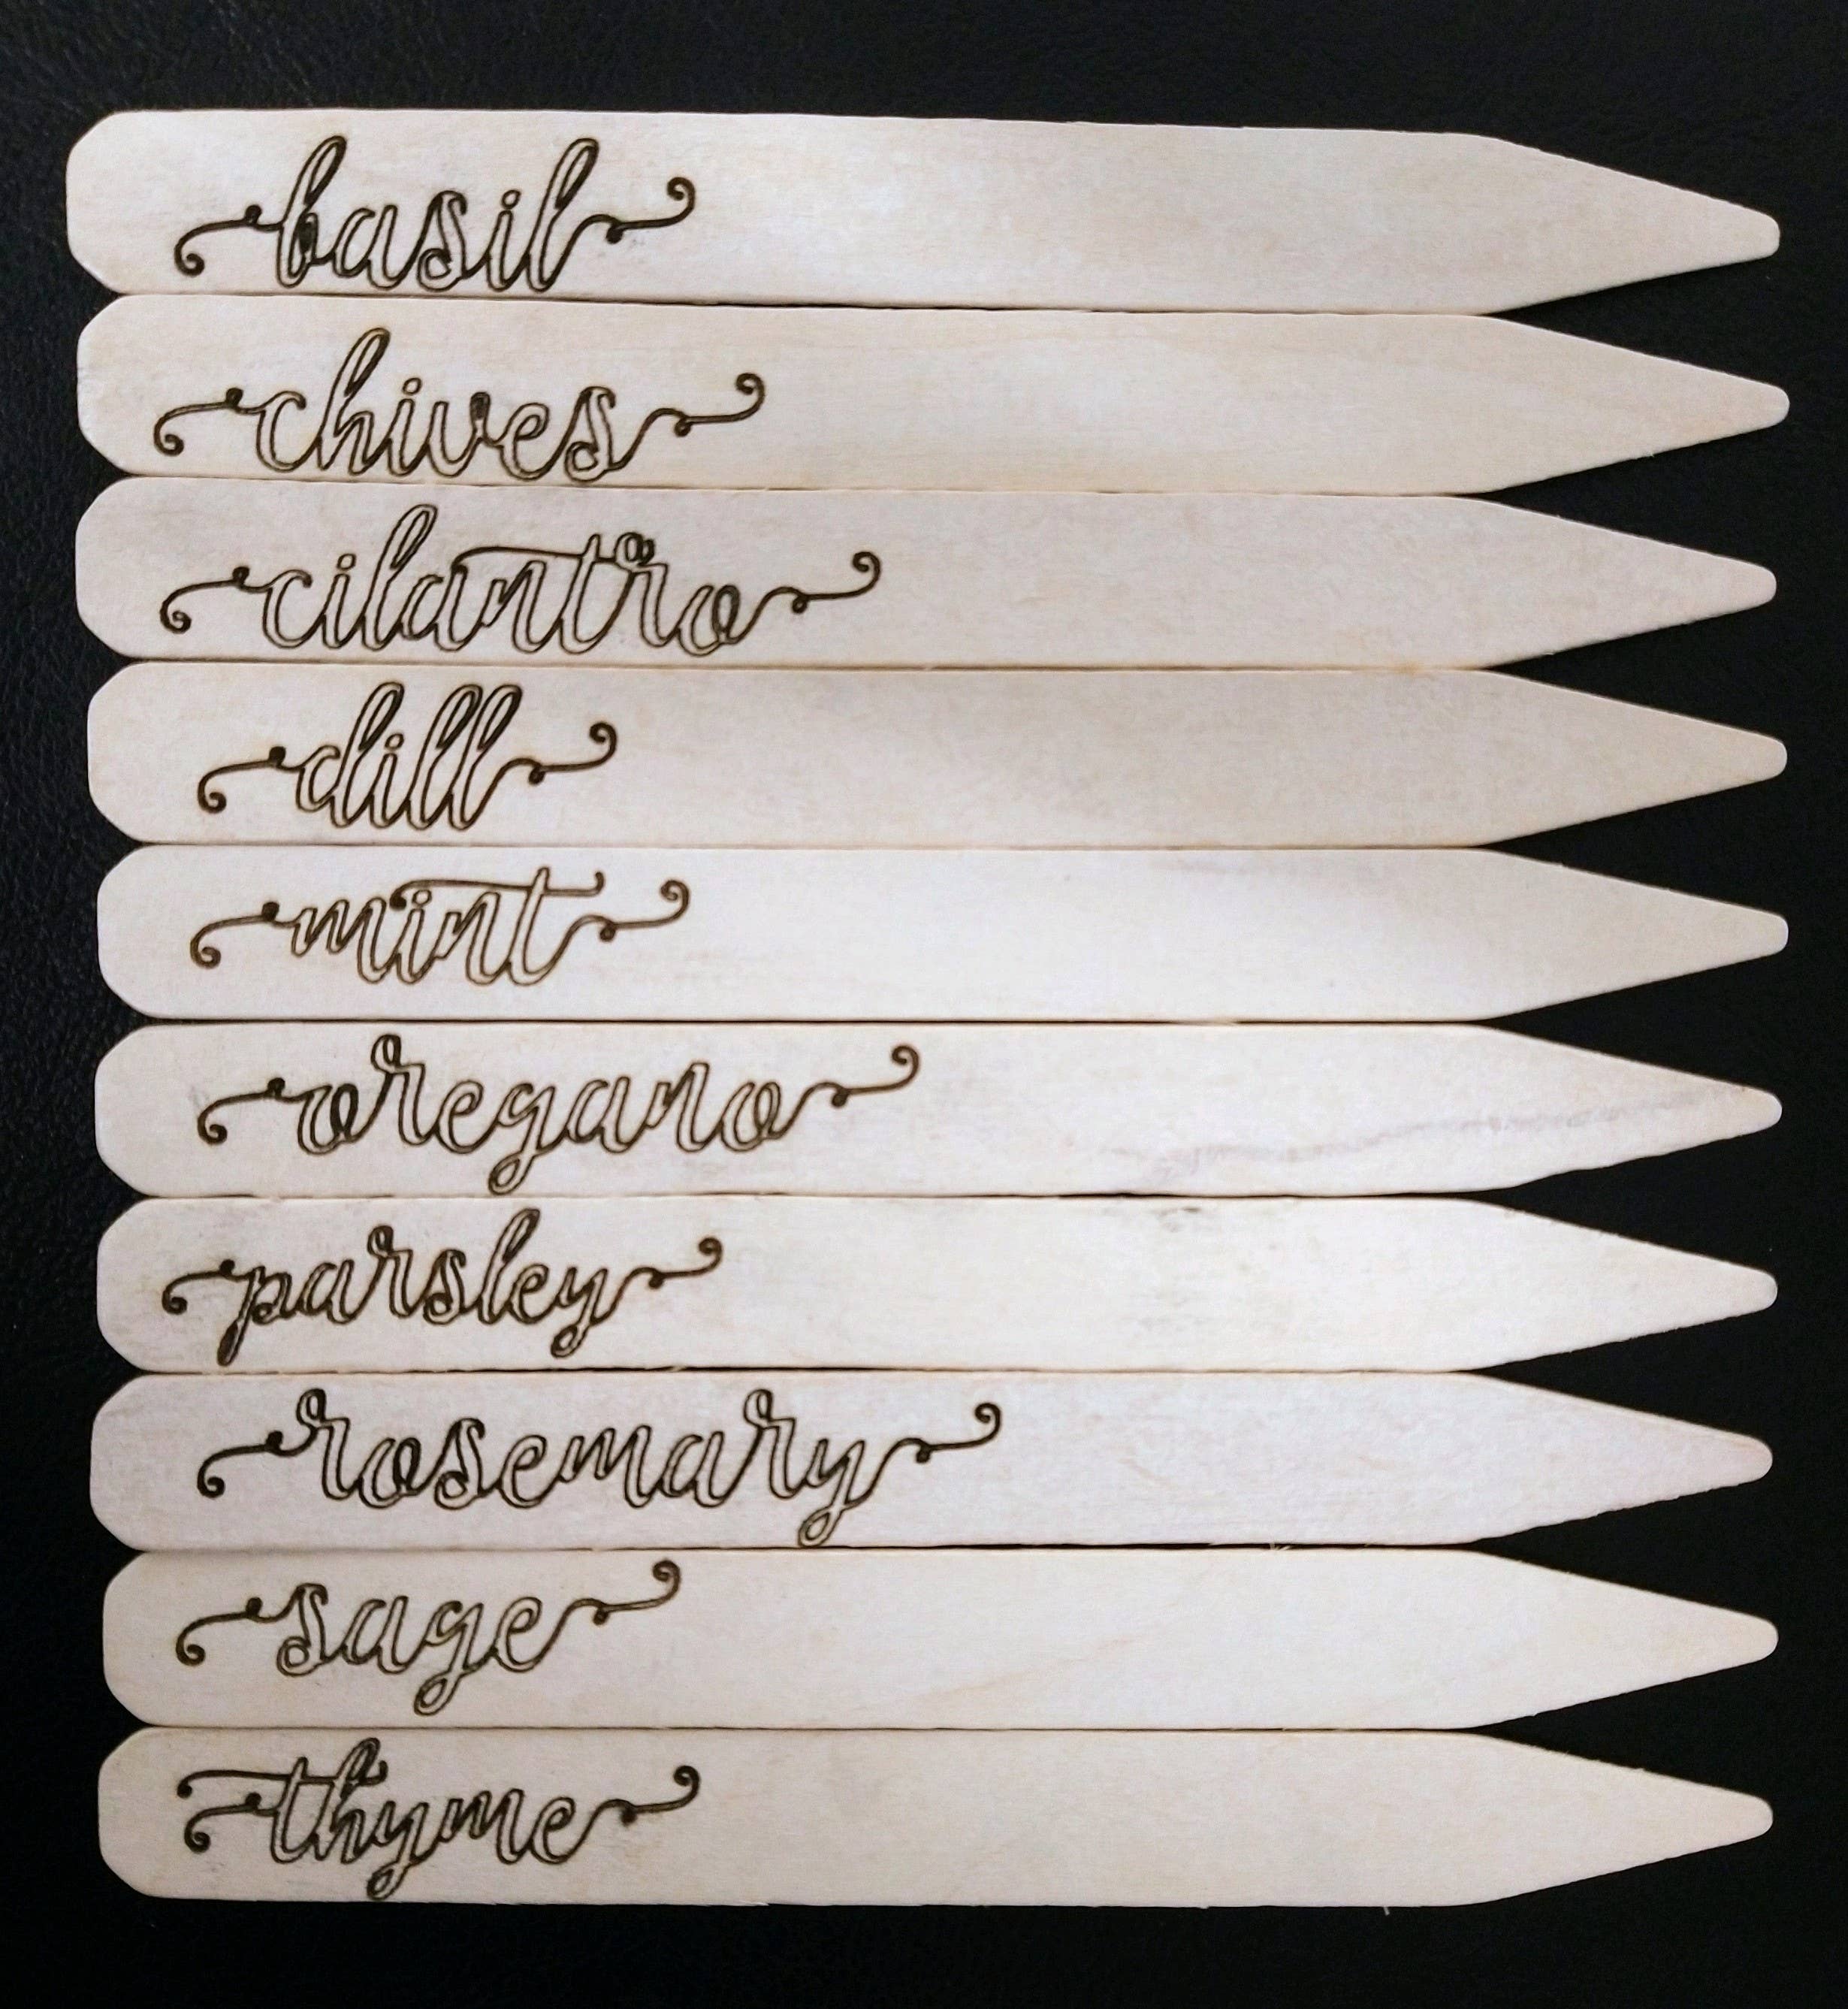 basil
chives
cilantro
dill
mint
oregano
parsley
rosemary
sage
thyme